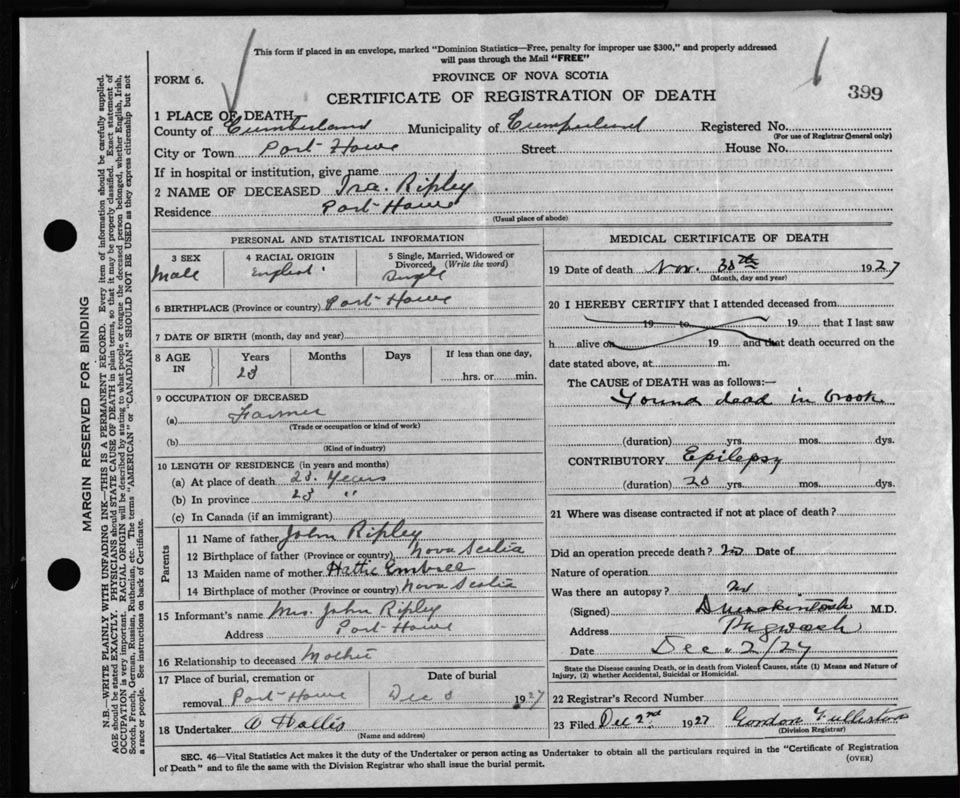 This form if placed in an envelope, marked "Dominion Statistics—Free, penalty for improper use $300," and properly addressed
will pass through the Mail "FREE"
FORM 6.
PROVINCE OF NOVA SCOTIA
399
CERTIFICATE OF REGISTRATION OF DEATH
1 PLACE OF DEATH
County of Cumberland Municipality of Cumberland Registered No.
(For use of Registrar General only)
City or Town Port Howe Street House No.
If in hospital or institution, give name
2 NAME OF DECEASED Ira. Ripley
Residence Port Howe
(Usual place of abode)
PERSONAL AND STATISTICAL INFORMATION
3 SEX 4 RACIAL ORIGIN 5 Single, Married, Widowed or
Divorced, (Write the word)
Male English Single
6 BIRTHPLACE (Province or country) Port Howe
7 DATE OF BIRTH (month, day and year)
8 AGE IN Years Months Days If less than one day,
23 hrs. or min.
9 OCCUPATION OF DECEASED
(a) Farmer
(Trade or occupation or kind of work)
(b)
(Kind of industry)
10 LENGTH OF RESIDENCE (in years and months)
(a) At place of death 23. Years
(b) In province 23 "
(c) In Canada (if an immigrant)
Parents
11 Name of father John Ripley
12 Birthplace of father (Province or country) Nova Scotia
13 Maiden name of mother Hattie Embree
14 Birthplace of mother (Province or country) Nova Scotia
15 Informant's name Mrs. John Ripley
Address Port Howe
16 Relationship to deceased Mother
17 Place of burial, cremation or Date of burial
removal Port Howe Dec 1927
18 Undertaker Hallis
(Name and address)
MEDICAL CERTIFICATE OF DEATH
19 Date of death Nov. 30th 1927
(Month, day and year)
20 I HEREBY CERTIFY that I attended deceased from
19 to 19 that I last saw
h alive on 19 and that death occurred on the
date stated above, at m.
The CAUSE of DEATH was as follows:—
Found dead in brook.
(duration) yrs. mos. dys.
CONTRIBUTORY Epilepsy
(duration) 20 yrs. mos. dys.
21 Where was disease contracted if not at place of death?
Did an operation precede death? no Date of
Nature of operation
Was there an autopsy? no
(Signed) M.D.
Address Pugwash
Date Dec. 2/27
State the Disease causing Death, or in death from Violent Causes, state (1) Means and Nature of
Injury, (2) whether Accidental, Suicidal or Homicidal.
22 Registrar's Record Number
23 Filed Dec 2nd 1927 Gordon
(Division Registrar)
SEC. 46—Vital Statistics Act makes it the duty of the Undertaker or person acting as Undertaker to obtain all the particulars required in the "Certificate of Registration
of Death" and to file the same with the Division Registrar who shall issue the burial permit.
(OVER)
MARGIN RESERVED FOR BINDING
N.B.—WRITE PLAINLY WITH UNFADING INK—THIS IS A PERMANENT RECORD. Every item of information should be carefully supplied.
AGE should be stated EXACTLY. PHYSICIANS should STATE CAUSE OF DEATH in plain terms, so that it may be properly classified. Exact statement of
OCCUPATION is very important. RACIAL ORIGIN will be described by stating to what people or tongue the deceased person belonged, whether English, Irish,
Scotch, French, German, Russian, Ruthenian, etc. The terms "AMERICAN" or "CANADIAN" SHOULD NOT BE USED as they express citizenship but not
a race or people. See instructions on back of Certificate.